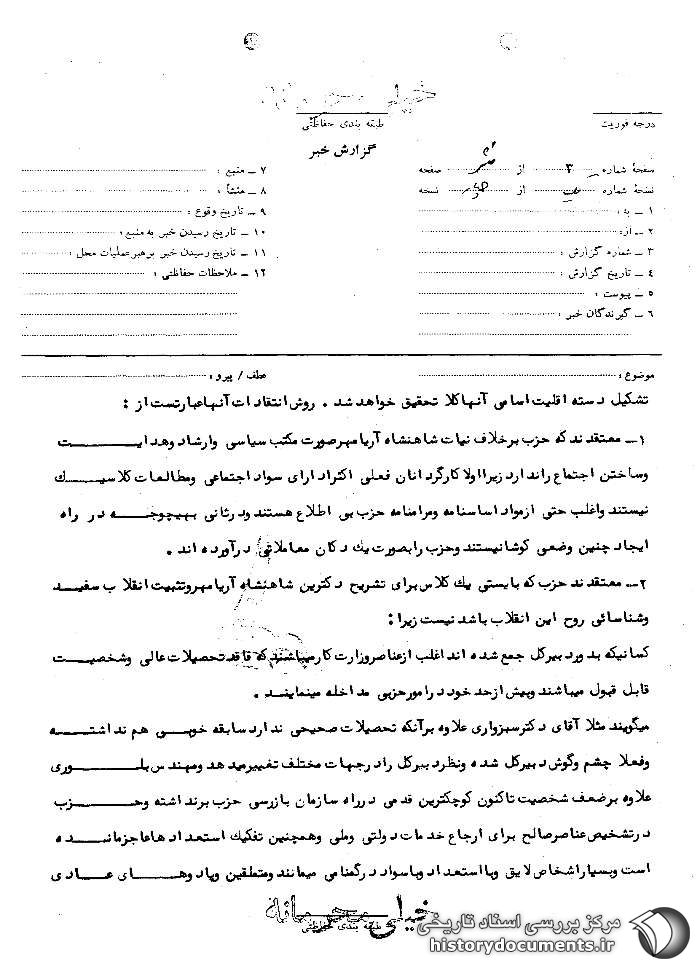 خیلی محرمانه
درجه فوریت
طبقه بندی حفاظتی
گزارش خبر
صفحهٔ شماره ۳ از صفحه
نسخهٔ شماره از نسخه
۱ ـ به :
۲ ـ از :
۳ ـ شماره گزارش :
۴ ـ تاریخ گزارش :
۵ ـ پیوست :
۶ ـ گیرندگان خبر :
۷ ـ منبع :
۸ ـ منشأ :
۹ ـ تاریخ وقوع :
۱۰ ـ تاریخ رسیدن خبر به منبع :
۱۱ ـ تاریخ رسیدن خبر برهبر عملیات محل :
۱۲ ـ ملاحظات حفاظتی :
موضوع :
عطف / پیرو :
تشکیل دسته اقلیت اسامی آنها کلا تحقیق خواهد شد . روش انتقادات آنها عبارتست از :
۱ـ معتقدند که حزب برخلاف نیات شاهنشاه آریامهر صورت مکتب سیاسی وارشاد وهدایت
وساختن اجتماع راندارد زیرا اولا کارگردانان فعلی اکثرا دارای سواد اجتماعی ومطالعات کلاسیک
نیستند واغلب حتی ازمواد اساسنامه ومرامنامه حزب بی اطلاع هستند ودرثانی بهیچوجه در راه
ایجاد چنین وضعی کوشا نیستند وحزب را بصورت یك دکان معاملاتی درآورده اند .
۲ـ معتقدند حزب که بایستی یك کلاس برای تشریح دکترین شاهنشاه آریامهر وتثبیت انقلاب سفید
وشناسائی روح این انقلاب باشد نیست زیرا :
کسانیکه بدور دبیرکل جمع شده اند اغلب ازعناصر وزارت کار میباشند که فاقد تحصیلات عالی وشخصیت
قابل قبول میباشند وبیش ازحد خود در امور حزبی مداخله مینمایند .
میگویند مثلا آقای دکتر سبزواری علاوه برآنکه تحصیلات صحیحی ندارد سابقه خوبی هم نداشته
وفعلا چشم وگوش دبیرکل شده ونظر دبیرکل را درجهات مختلف تغییر میدهد ومهندس بلوری
علاوه برضعف شخصیت تاکنون کوچکترین قدمی درراه سازمان بازرسی حزب برنداشته وحزب
درتشخیص عناصر صالح برای ارجاع خدمات دولتی وملی وهمچنین تفکیك استعدادها عاجز مانده
است وبسیار اشخاص لایق وبا استعداد وبا سواد درگمنامی میمانند ومتملقین وپادوهای عادی
خیلی محرمانه
طبقه بندی حفاظتی
مرکز بررسی اسناد تاریخی
historydocuments.ir